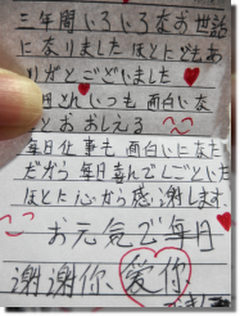 三年間いろいろなお世話
になりましたほとにどもあ
りがとございました
日とれいつも面白いな
とおおしえる
毎日仕事も面白いになた
だから毎日喜んでしごといた
ほとに心から感謝します.
お元気で毎日
谢谢你、爱你